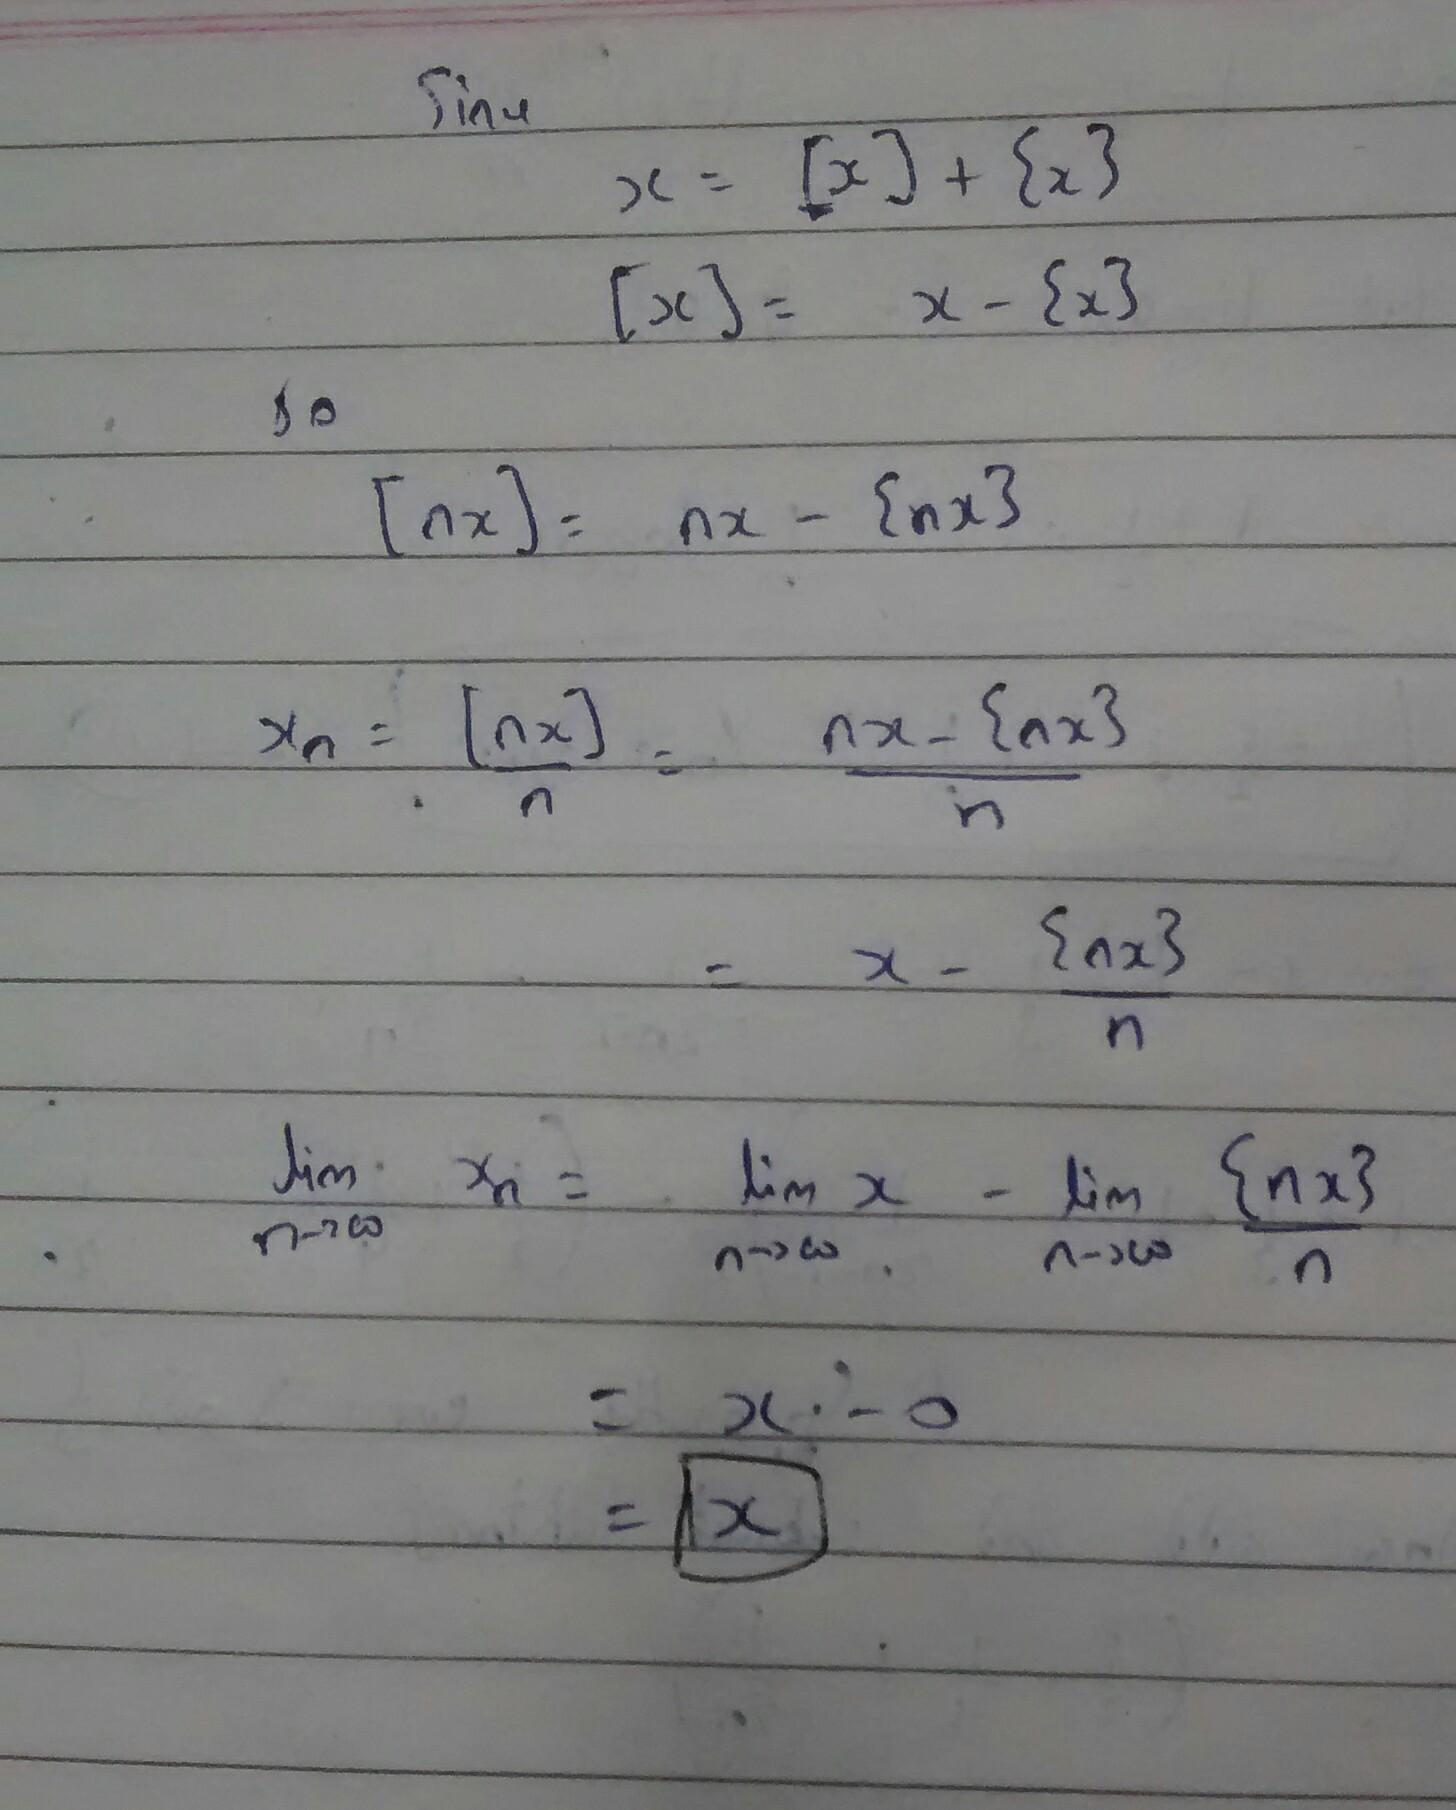 Since
x = [x] + {x}
[x] = x - {x}
so
[nx] = nx - {nx}
xₙ = [nx]/n = nx - {nx}/n
= x - {nx}/n
lim n→∞ xₙ = lim n→∞ x - lim n→∞ {nx}/n
= x - 0
= x